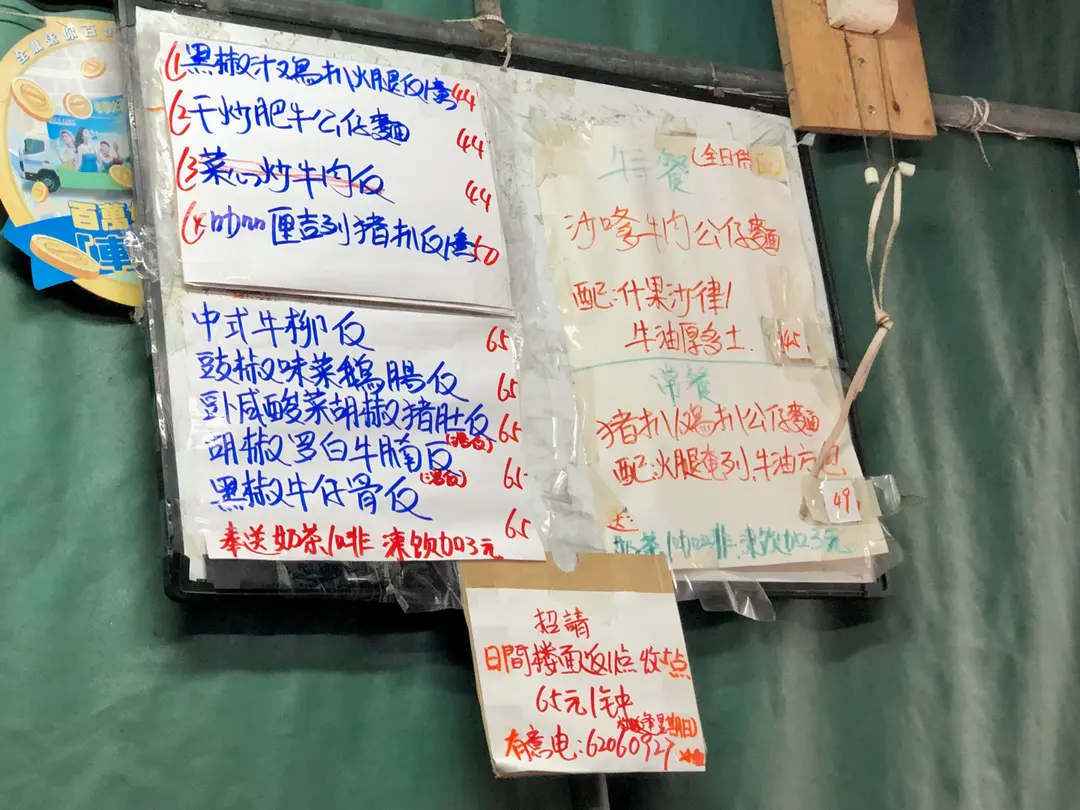 (1 黑椒汁鸡扒火腿反 44
(2 干炒肥牛公仔麵 44
(3 菜心炒牛肉反 44
厘吉列豬扒反 50
中式牛柳反 65
豉椒味菜鵝腸反 65
卧咸酸菜胡椒猪肚反 65
胡椒罗白牛腩反 65
黑椒牛仔骨反 65
奉送奶茶/啡 凍饮加3元
特餐
(全日供
沙嗲牛肉公仔麵
配:什果沙律/
牛油厚多士
45
常餐
猪扒/鸡扒公仔麵
配:火腿奄列.牛油方包
49
送:
奶茶/咖啡.凍饮加3元
招請
日間楼面返1点 收5点
65元/钟
星期日
有意电:62060927
百萬
「車